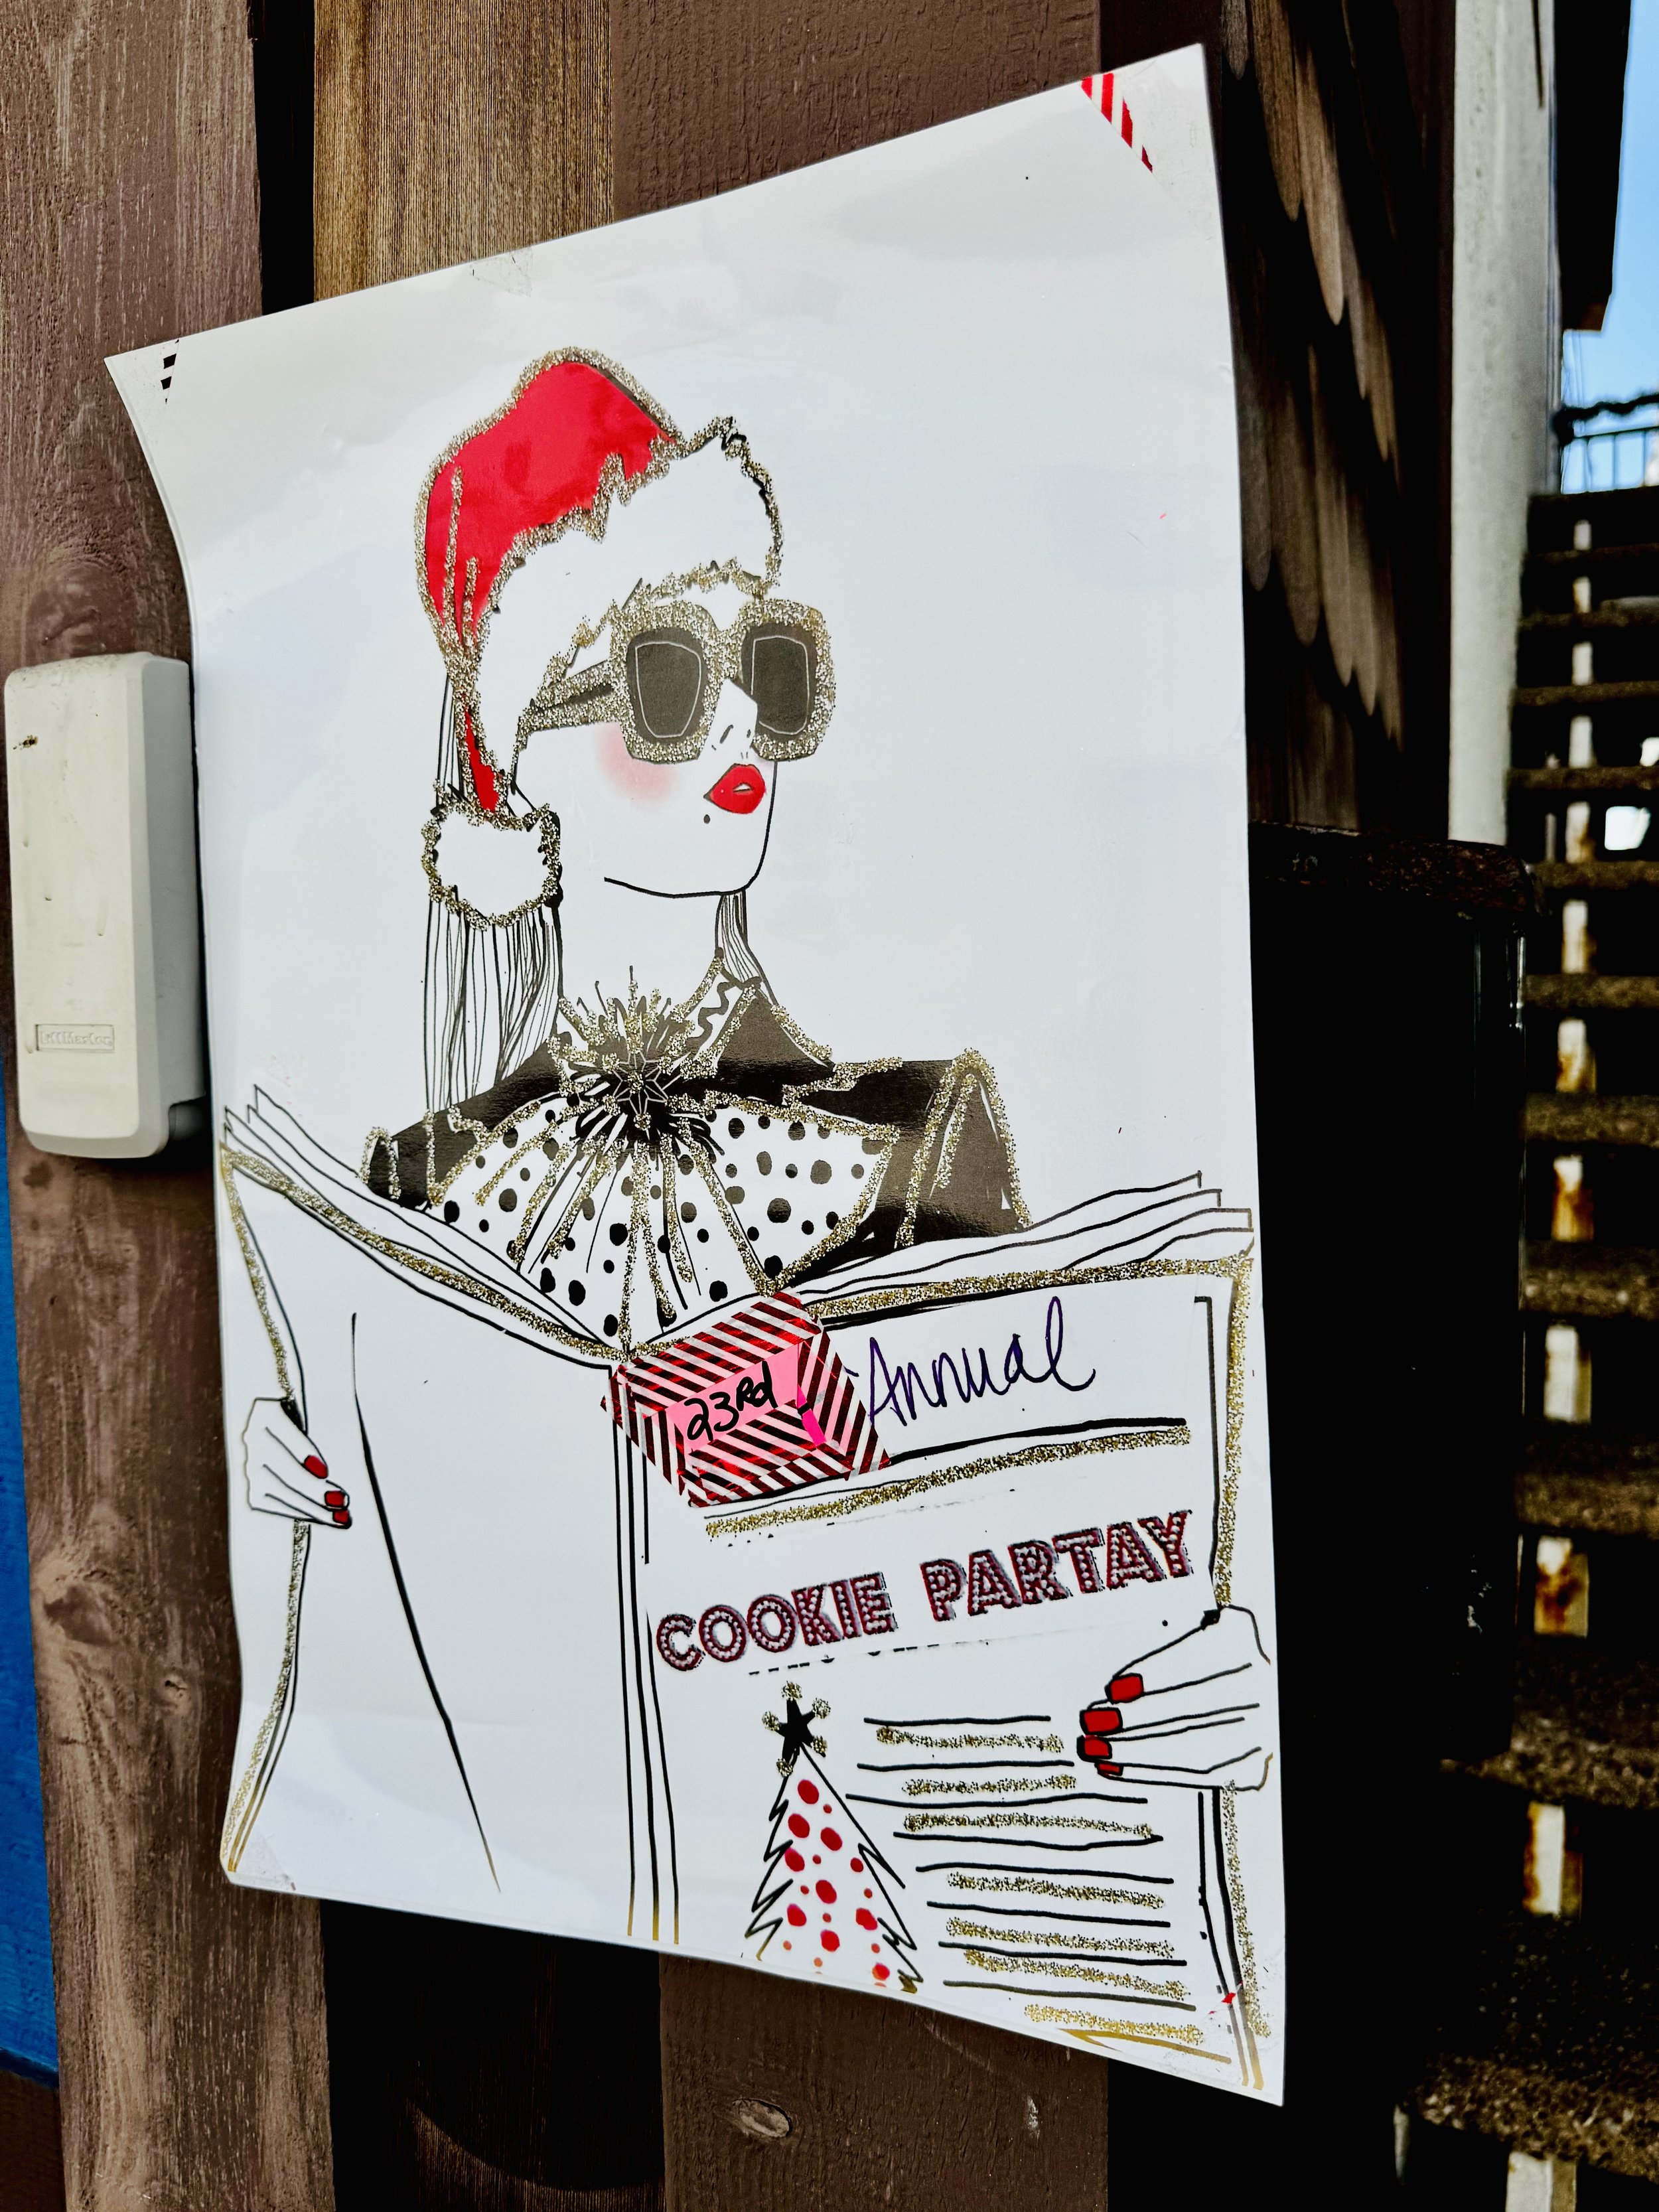 23Rd Annual
COOKIE PARTAY